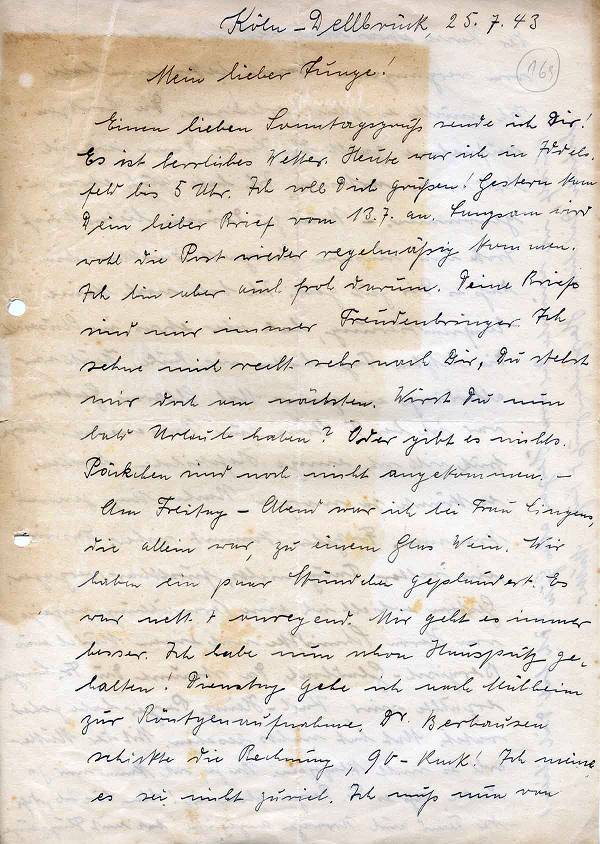 Köln-Dellbrück, 25. 7. 43
169
Mein lieber Junge!
Einen lieben Sonntagsgruß sende ich Dir!
Es ist herrliches Wetter. Heute war ich in Iddels-
feld bis 5 Uhr. Ich soll Dich grüßen! Gestern kam
Dein lieber Brief vom 13.7. an. Langsam wird
wohl die Post wieder regelmäßig kommen.
Ich bin aber auch froh darum. Deine Briefe
sind mir immer Freudenbringer. Ich
sehne mich recht sehr nach Dir, Du stehst
mir doch am nächsten. Wirst Du nun
bald Urlaub haben? Oder gibt es nichts.
Päckchen sind noch nicht angekommen. –
Am Freitag-Abend war ich bei Frau Lingens,
die allein war, zu einem Glas Wein. Wir
haben ein paar Stündchen geplaudert. Es
war nett + anregend. Mir geht es immer
besser. Ich habe nun schon Hausputz ge-
halten! Dienstag gehe ich nach Mülheim
zur Röntgenaufnahme. Dr. Berhausen
schickte die Rechnung, 90 - RMK! Ich meine,
es sei nicht zuviel. Ich muß nun von